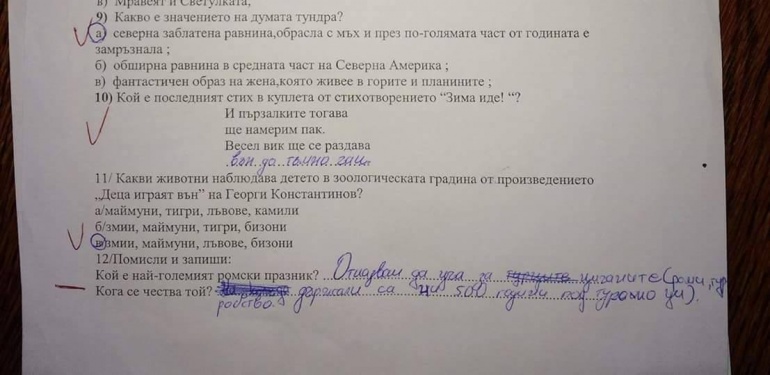 в) Мравеят и Светулката,
9) Какво е значението на думата тундра?
а) северна заблатена равнина,обрасла с мъх и през по-голямата част от годината е
замръзнала ;
б) обширна равнина в средната част на Северна Америка ;
в) фантастичен образ на жена,която живее в горите и планините ;
10) Кой е последният стих в куплета от стихотворението “Зима иде! “?
И пързалките тогава
ще намерим пак.
Весел вик ще се раздава
вън до тъмна
11/ Какви животни наблюдава детето в зоологическата градина от произведението
„Деца играят вън” на Георги Константинов?
а/маймуни, тигри, лъвове, камили
б/змии, маймуни, тигри, бизони
в/змии, маймуни, лъвове, бизони
12/Помисли и запиши:
Кой е най-големият ромски празник? Отказвам да уча за циганите (роми,
Кога се чества той? държали са ни 500 години под турско
робство.